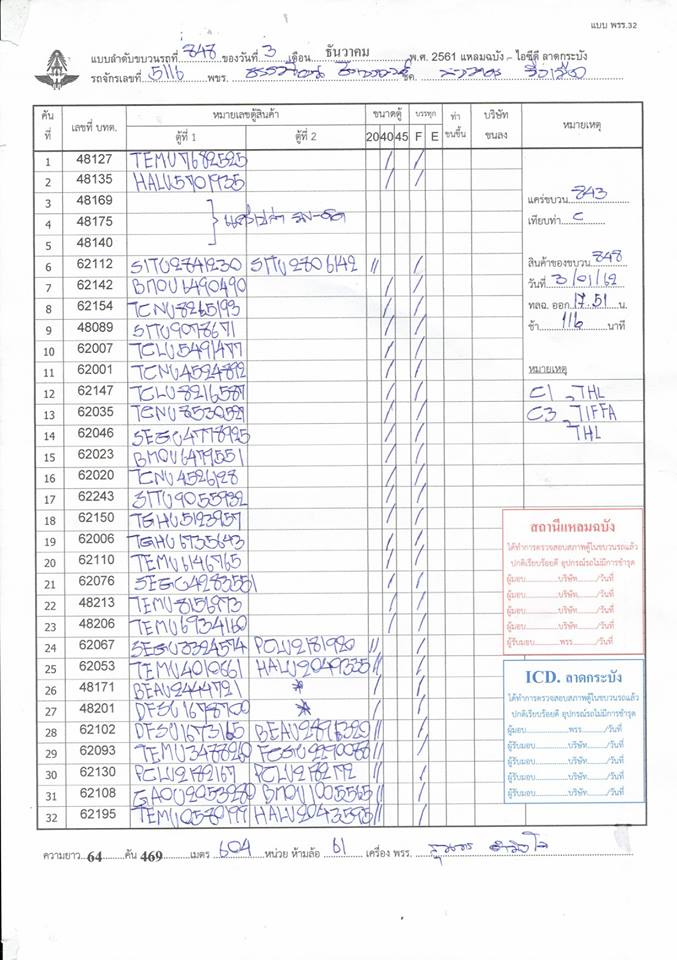 แบบ พรร.32
แบบลำดับขบวนรถที่ 848 ของวันที่ 3 เดือน ธันวาคม พ.ศ. 2561 แหลมฉบัง – ไอซีดี ลาดกระบัง
รถจักรเลขที่ 5116 พขร.
คันที่ เลขที่ บทต. หมายเลขตู้สินค้า ขนาดตู้ บรรทุก ท่าขนขึ้น บริษัทขนลง หมายเหตุ
ตู้ที่ 1 ตู้ที่ 2 20 40 45 F E
1 48127 TEMU7682525 / /
2 48135 HALU5701935 / /
3 48169
4 48175
5 48140
6 62112 SITU2841230 SITU2806142 // /
7 62142 BMOU6490490 / /
8 62154 TCNU8265193 / /
9 48089 SITU9078671 / /
10 62007 TCLU5491477 / /
11 62001 TCNU4524892 / /
12 62147 TCLU8216587 / /
13 62035 TCNU8530527 / /
14 62046 SEGU4778925 / /
15 62023 BMOU6479551 / /
16 62020 TCNU4526128 / /
17 62243 SITU9055932 / /
18 62150 TGHU5123957 / /
19 62006 TGHU6735643 / /
20 62110 TEMU6146765 / /
21 62076 SEGU4283551 / /
22 48213 TEMU8156973 / /
23 48206 TEMU6934160 / /
24 62067 SEGU3324574 PCLU2181920 // /
25 62053 TEMU4010661 HALU2049335 // /
26 48171 BEAU2444721 * / /
27 48201 DFSU1678700 * / /
28 62102 DFSU1673165 BEAU2896320 // /
29 62093 TEMU3478260 FCGU2270088 // /
30 62130 PCLU2182167 PCLU2182172 // /
31 62108 GAOU2053280 BMOU1005565 // /
32 62195 TEMU0580199 HALU2043595 // /
แคร่ขบวน 843
เทียบท่า C
สินค้าของขบวน 848
วันที่ 3/01/62
ทลฉ. ออก 17.51 น.
ช้า 116 นาที
หมายเหตุ
C1 THL
C3 TIFFA
THL
สถานีแหลมฉบัง
ได้ทำการตรวจสอบสภาพตู้ในขบวนรถแล้ว
ปกติเรียบร้อยดี อุปกรณ์รถไม่มีการชำรุด
ผู้มอบ..............บริษัท........./วันที่
ผู้มอบ..............บริษัท........./วันที่
ผู้มอบ..............บริษัท........./วันที่
ผู้มอบ..............บริษัท........./วันที่
ผู้รับมอบ...........พรร........./วันที่
ICD. ลาดกระบัง
ได้ทำการตรวจสอบสภาพตู้ในขบวนรถแล้ว
ปกติเรียบร้อยดี อุปกรณ์รถไม่มีการชำรุด
ผู้มอบ...............พรร........./วันที่
ผู้รับมอบ............บริษัท........./วันที่
ผู้รับมอบ............บริษัท........./วันที่
ผู้รับมอบ............บริษัท........./วันที่
ผู้รับมอบ............บริษัท........./วันที่
ความยาว 64 คัน 469 เมตร 604 หน่วย ห้ามล้อ 61 เครื่อง พรร.